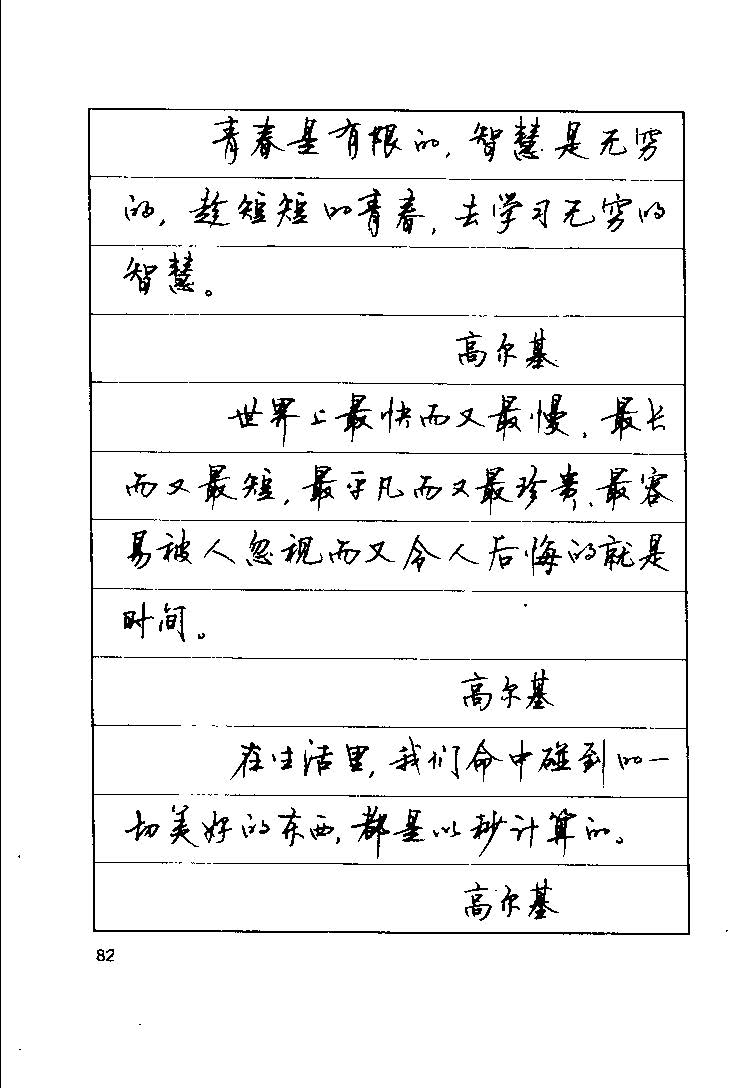 青春是有限的,智慧是无穷
的,趁短短的青春,去学习无穷的
智慧。
高尔基
世界上最快而又最慢,最长
而又最短,最平凡而又最珍贵,最容
易被人忽视而又令人后悔的就是
时间。
高尔基
在生活里,我们命中碰到的一
切美好的东西,都是以秒计算的。
高尔基
82